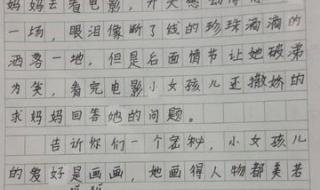 妈妈去看电影，开头感动得
一场，眼泪像断了线的珍珠滴滴的
洒落一地。但是后面情节让她破涕
为笑，看完电影小女孩儿还撒娇的
求妈妈回答她的问题。
告诉你们一个密秘，小女孩儿
的爱好是画画，她画得人物都美若